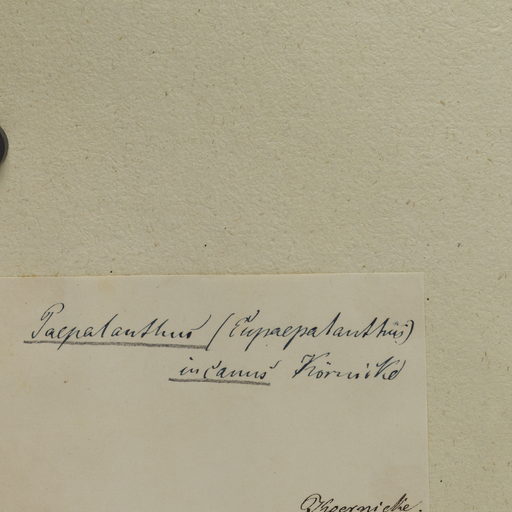 Paepalanthus (Eupaepalanthus)
incanus Körnicke
Koernicke.